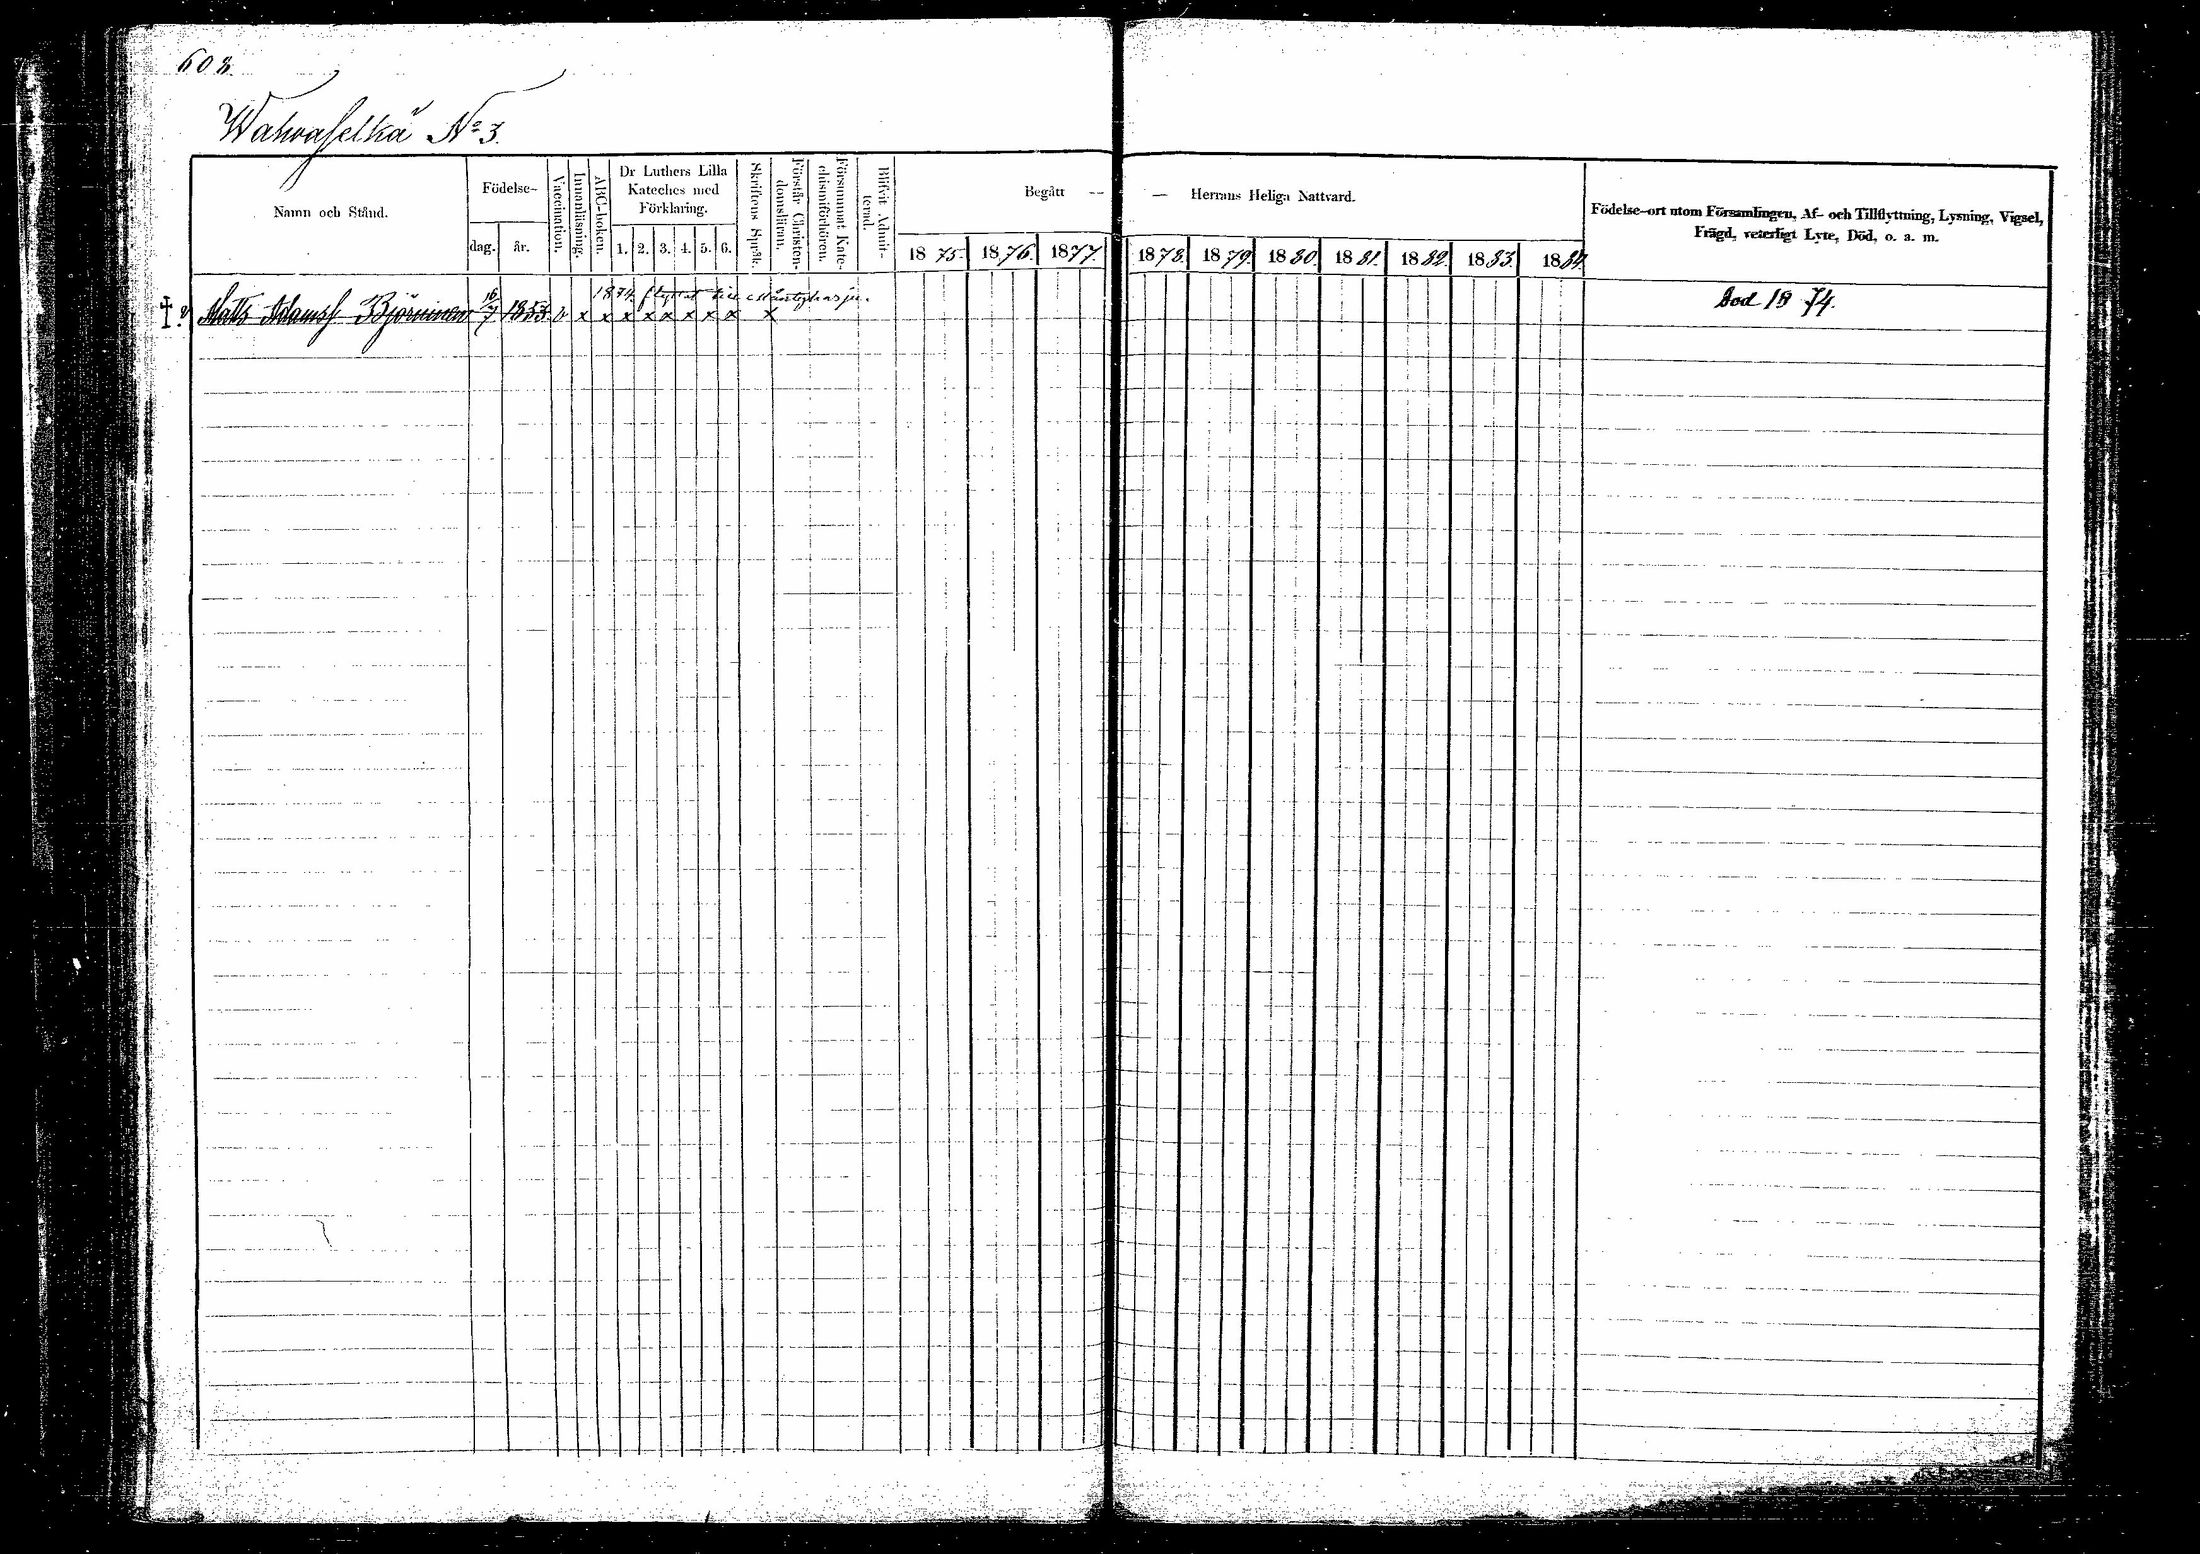 608.
Wahvaselkä No 3.
Namn och Stånd.
Födelse-
dag. år.
Vaccination.
Innanläsning.
ABC-boken.
Dr Luthers Lilla
Kateches med
Förklaring.
1. 2. 3. 4. 5. 6.
Skriftens Språk.
Förstår Christen-
domsläran.
Försummat Kate-
chismiförhören.
Blifvit Admit-
terad.
Begått — — Herrans Heliga Nattvard.
1875. 1876. 1877. 1878. 1879. 1880. 1881. 1882. 1883. 1884.
Födelse-ort utom Församlingen, Af- och Tillflyttning, Lysning, Vigsel,
Frägd, veterligt Lyte, Död, o. a. m.
1874 flyttat till Mäntyharju.
Matts Adamss Björninen 16/7 1853 v x x x x x x x x x
Död 1874.